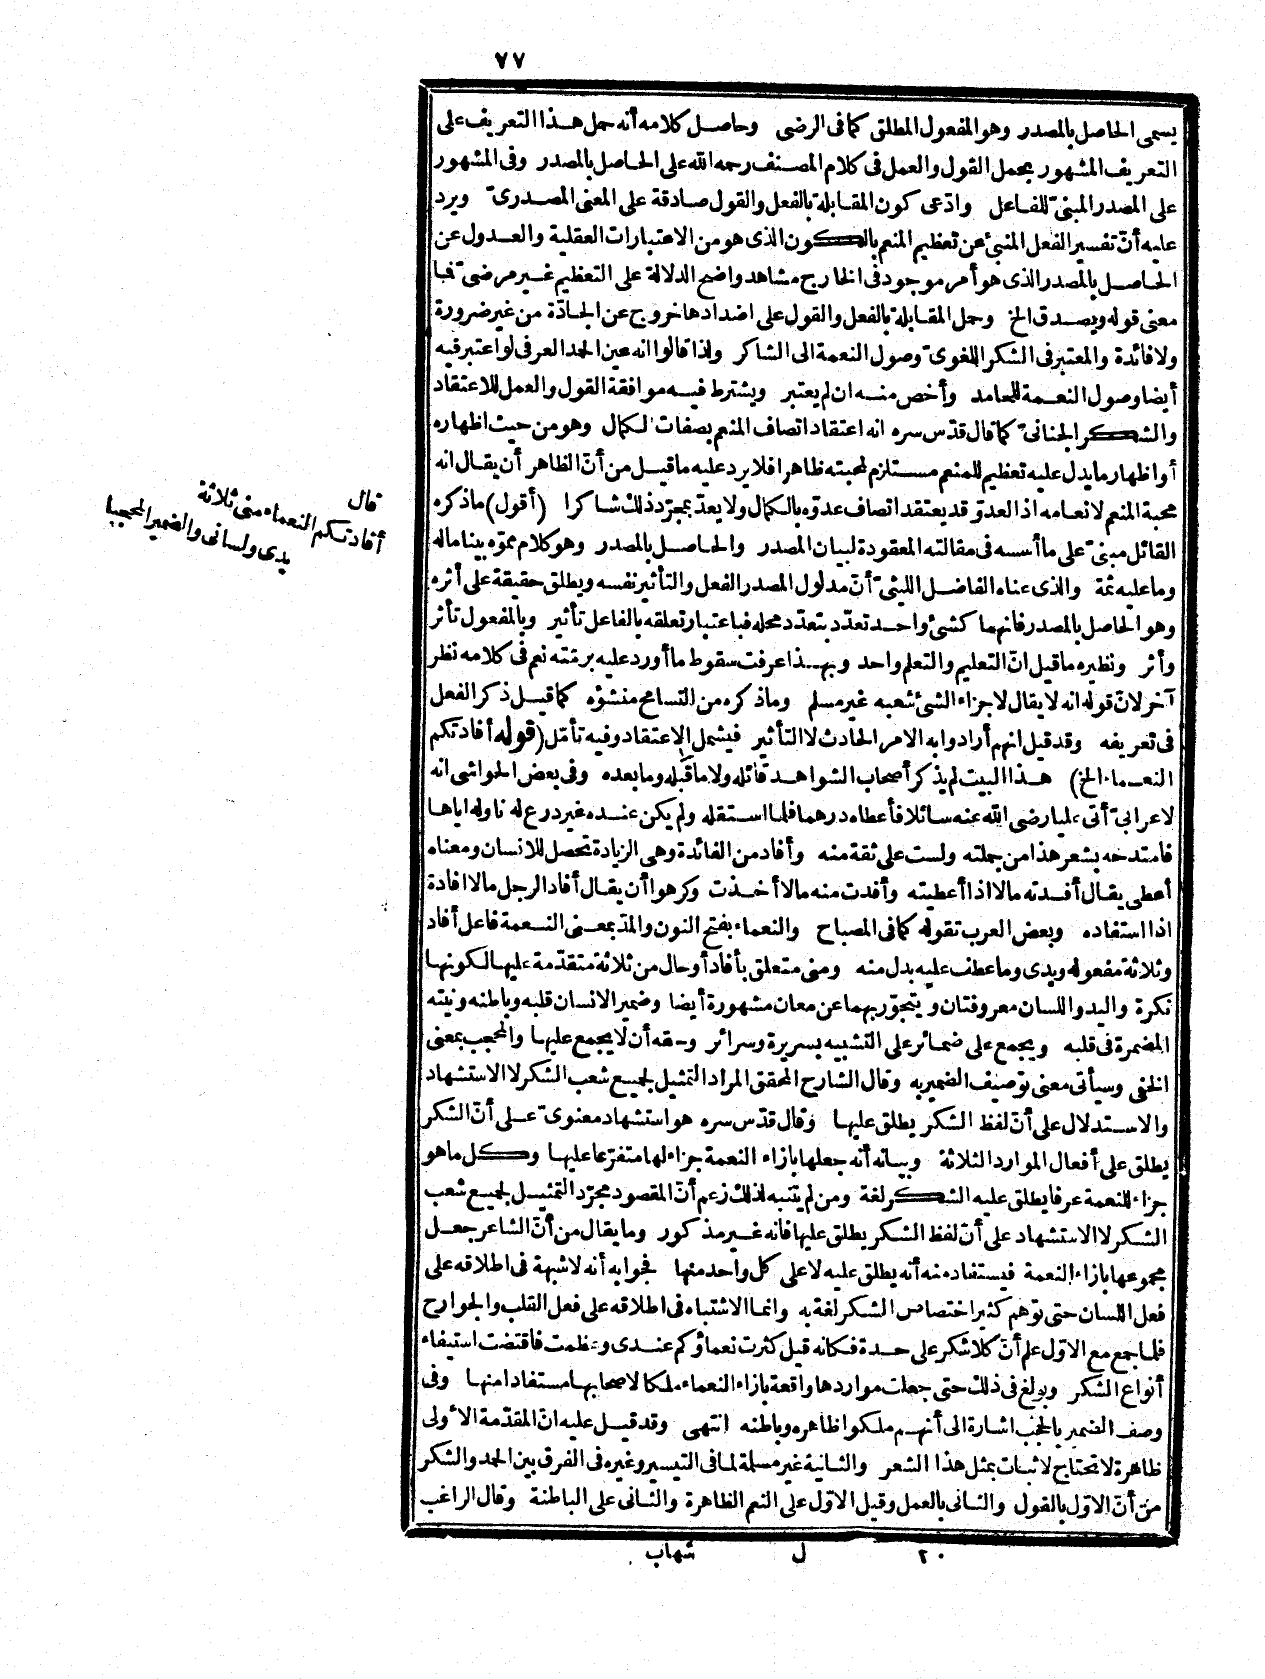 ٧٧
يسمى الحاصل بالمصدر وهو المفعول المطلق كما فى الرضى وحاصل كلامه أنه حمل هذا التعريف على
التعريف المشهور بحمل القول والعمل فى كلام المصنف رحمه الله على الحاصل بالمصدر وفى المشهور
على المصدر المبنىّ للفاعل وادّعى كون المقابلة بالفعل والقول صادقة على المعنى المصدرىّ ويرد
عليه أنّ تفسير الفعل المنبئ عن تعظيم المنعم بالكون الذى هو من الاعتبارات العقلية والعدول عن
الحاصل بالمصدر الذى هو أمر موجود فى الخارج مشاهد واضح الدلالة على التعظيم غير مرضىّ فما
معنى قوله ويصدق الخ وحمل المقابلة بالفعل والقول على اضدادها خروج عن الجادّة من غير ضرورة
ولا فائدة والمعتبر فى الشكر اللغوىّ وصول النعمة الى الشاكر ولذا قالوا انه عين الحمد العرفى لو اعتبر فيه
أيضا وصول النعمة للحامد وأخص منه ان لم يعتبر ويشترط فيه موافقة القول والعمل للاعتقاد
والشكر الجنانىّ كما قال قدّس سره انه اعتقاد اتصاف المنعم بصفات الكمال وهو من حيث اظهاره
أو اظهار ما يدل عليه تعظيم للمنعم مستلزم لمحبته ظاهرا فلا يرد عليه ما قيل من أنّ الظاهر أن يقال انه
محبة المنعم لانعامه اذ العدوّ قد يعتقد اتصاف عدوّه بالكمال ولا يعدّ بمجرّد ذلك شاكرا (أقول) ما ذكره
القائل مبنىّ على ما أسسه فى مقالته المعقودة لبيان المصدر والحاصل بالمصدر وهو كلام مموّه بينا ماله
وما عليه ثمة والذى عناه الفاضل الليثىّ أنّ مدلول المصدر الفعل والتأثير نفسه ويطلق حقيقة على أثره
وهو الحاصل بالمصدر فانهما كشئ واحد تعدّد بتعدّد محله فباعتبار تعلقه بالفاعل تأثير وبالمفعول تأثر
وأثر ونظيره ما قيل انّ التعليم والتعلم واحد وبهذا عرفت سقوط ما أورد عليه برمّته نعم فى كلامه نظر
آخر لانّ قوله انه لا يقال لاجزاء الشئ شعبه غير مسلم وما ذكره من التسامح منشؤه كما قيل ذكر الفعل
فى تعريفه وقد قيل انهم أرادوا به الامر الحادث لا التأثير فيشمل الاعتقاد وفيه تأمّل (قوله أفادتكم
النعماء الخ) هذا البيت لم يذكر أصحاب الشواهد قائله ولا ما قبله وما بعده وفى بعض الحواشى انه
لاعرابىّ أتى عليا رضى الله عنه سائلا فأعطاه درهما فلما استقله ولم يكن عنده غير درع له ناوله اياها
فامتدحه بشعر هذا من جملته ولست على ثقة منه وأفاد من الفائدة وهى الزيادة تحصل للانسان ومعناه
أعطى يقال أفدته مالا اذا أعطيته وأفدت منه مالا أخذت وكرهوا أن يقال أفاد الرجل مالا افادة
اذا استفاده وبعض العرب تقوله كما فى المصباح والنعماء بفتح النون والمدّ بمعنى النعمة فاعل أفاد
وثلاثة مفعوله ويدى وما عطف عليه بدل منه ومنى متعلق بأفاد أو حال من ثلاثة متقدّمة عليها لكونها
نكرة واليد واللسان معروفتان ويتجوّز بهما عن معان مشهورة أيضا وضمير الانسان قلبه وباطنه ونيته
المضمرة فى قلبه ويجمع على ضمائر على التشبيه بسريرة وسرائر وحقه أن لا يجمع عليها والمحجب بمعنى
الخفى وسيأتى معنى توصيف الضمير به وقال الشارح المحقق المراد التمثيل لجميع شعب الشكر لا الاستشهاد
والاستدلال على أنّ لفظ الشكر يطلق عليها وقال قدّس سره هو استشهاد معنوىّ على أنّ الشكر
يطلق على أفعال الموارد الثلاثة وبيانه أنه جعلها بازاء النعمة جزاء لها متفرّعا عليها وكل ما هو
جزاء للنعمة عرفا يطلق عليه الشكر لغة ومن لم يتنبه لذلك زعم أنّ المقصود مجرّد التمثيل لجميع شعب
الشكر لا الاستشهاد على أنّ لفظ الشكر يطلق عليها فانه غير مذكور وما يقال من أنّ الشاعر جعل
مجموعها بازاء النعمة فيستفاد منه أنه يطلق عليه لا على كل واحد منها فجوابه أنه لا شبهة فى اطلاقه على
فعل اللسان حتى توهم كثير اختصاص الشكر لغة به وانما الاشتباه فى اطلاقه على فعل القلب والجوارح
فلما جمع مع الاوّل علم أنّ كلا شكر على حدة فكانه قيل كثرت نعماؤكم عندى وعظمت فاقتضت استيفاء
أنواع الشكر وبولغ فى ذلك حتى جعلت مواردها واقعة بازاء النعماء ملكا لاصحابها مستفادا منها وفى
وصف الضمير بالمحجب اشارة الى أنهم ملكوا ظاهره وباطنه انتهى وقد قيل عليه انّ المقدّمة الأولى
ظاهرة لا تحتاج لاثبات بمثل هذا الشعر والثانية غير مسلمة لما فى التيسير وغيره فى الفرق بين الحمد والشكر
من أنّ الاوّل بالقول والثانى بالعمل وقيل الاوّل على النعم الظاهرة والثانى على الباطنة وقال الراغب
قال
أفادتكم النعماء منى ثلاثة
يدى ولسانى والضمير المحجبا
٢٠ ل شهاب